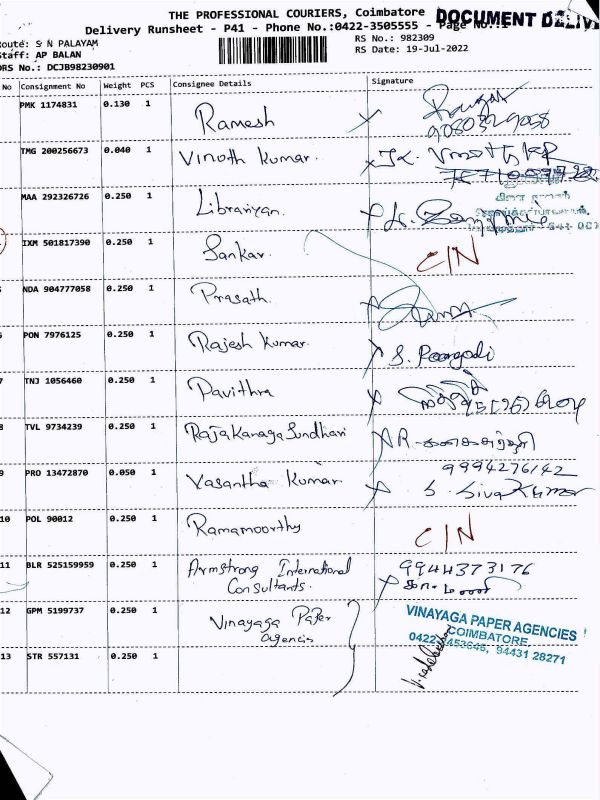 THE PROFESSIONAL COURIERS, Coimbatore DOCUMENT DELIV
Delivery Runsheet - P41 - Phone No.:0422-3505555 - Page No.:
Route: S N PALAYAM RS No.: 982309
Staff: AP BALAN RS Date: 19-Jul-2022
DRS No.: DCJB98230901
No Consignment No Weight PCS Consignee Details Signature
PMK 1174831 0.130 1 Ramesh
TMG 200256673 0.040 1 Vinoth Kumar.
MAA 292326726 0.250 1 Librariyan.
IXM 501817390 0.250 1 Sankar. C/N
NDA 904777058 0.250 1 Prasath.
PON 7976125 0.250 1 Rajesh Kumar. S. Poongodi
7 TNJ 1056460 0.250 1 Pavithra
8 TVL 9734239 0.250 1 Raja Kanaga Sundhari
9994276142
9 PRO 13472870 0.050 1 Vasantha Kumar. S. Siva Kumar
10 POL 90012 0.250 1 Ramamoorthy C/N
11 BLR 525159959 0.250 1 Armstrong International 9944373176
Consultants.
12 GPM 5199737 0.250 1 Vinayaga Paper VINAYAGA PAPER AGENCIES
Agencis COIMBATORE.
94431 28271
13 STR 557131 0.250 1